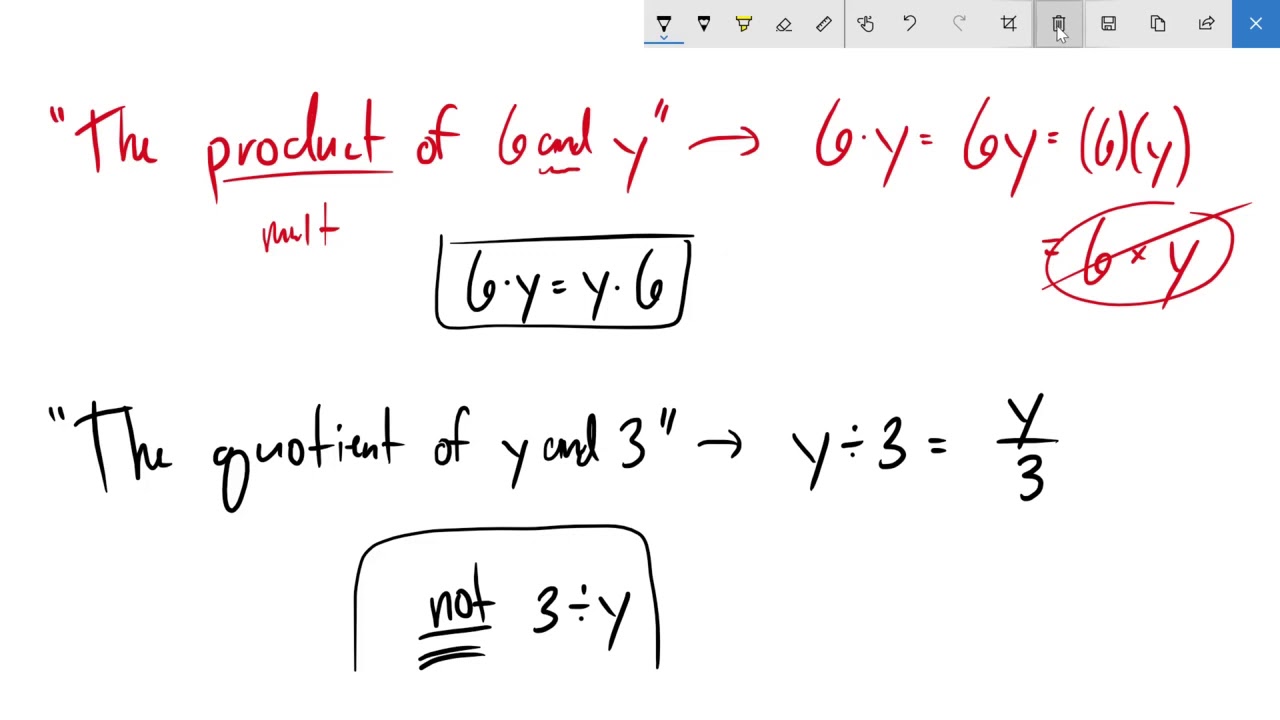 "The product of 6 and y" → 6·y = 6y = (6)(y)
mult
= 6 × y
6·y = y·6
"The quotient of y and 3" → y ÷ 3 = y/3
not 3 ÷ y